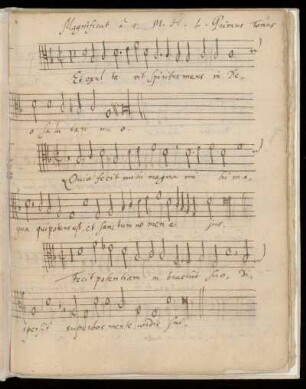 Magnificat à 5. M. H. L. Primus Tonus
Et exul ta vit Spiritus meus in De-
o salu tari me o.
Quia fecit mihi magna mi hi ma-
gna qui potens est, et sanctum no men e ius.
Fecit potentiam in brachio suo, di-
spersit superbos mente cordis sui.